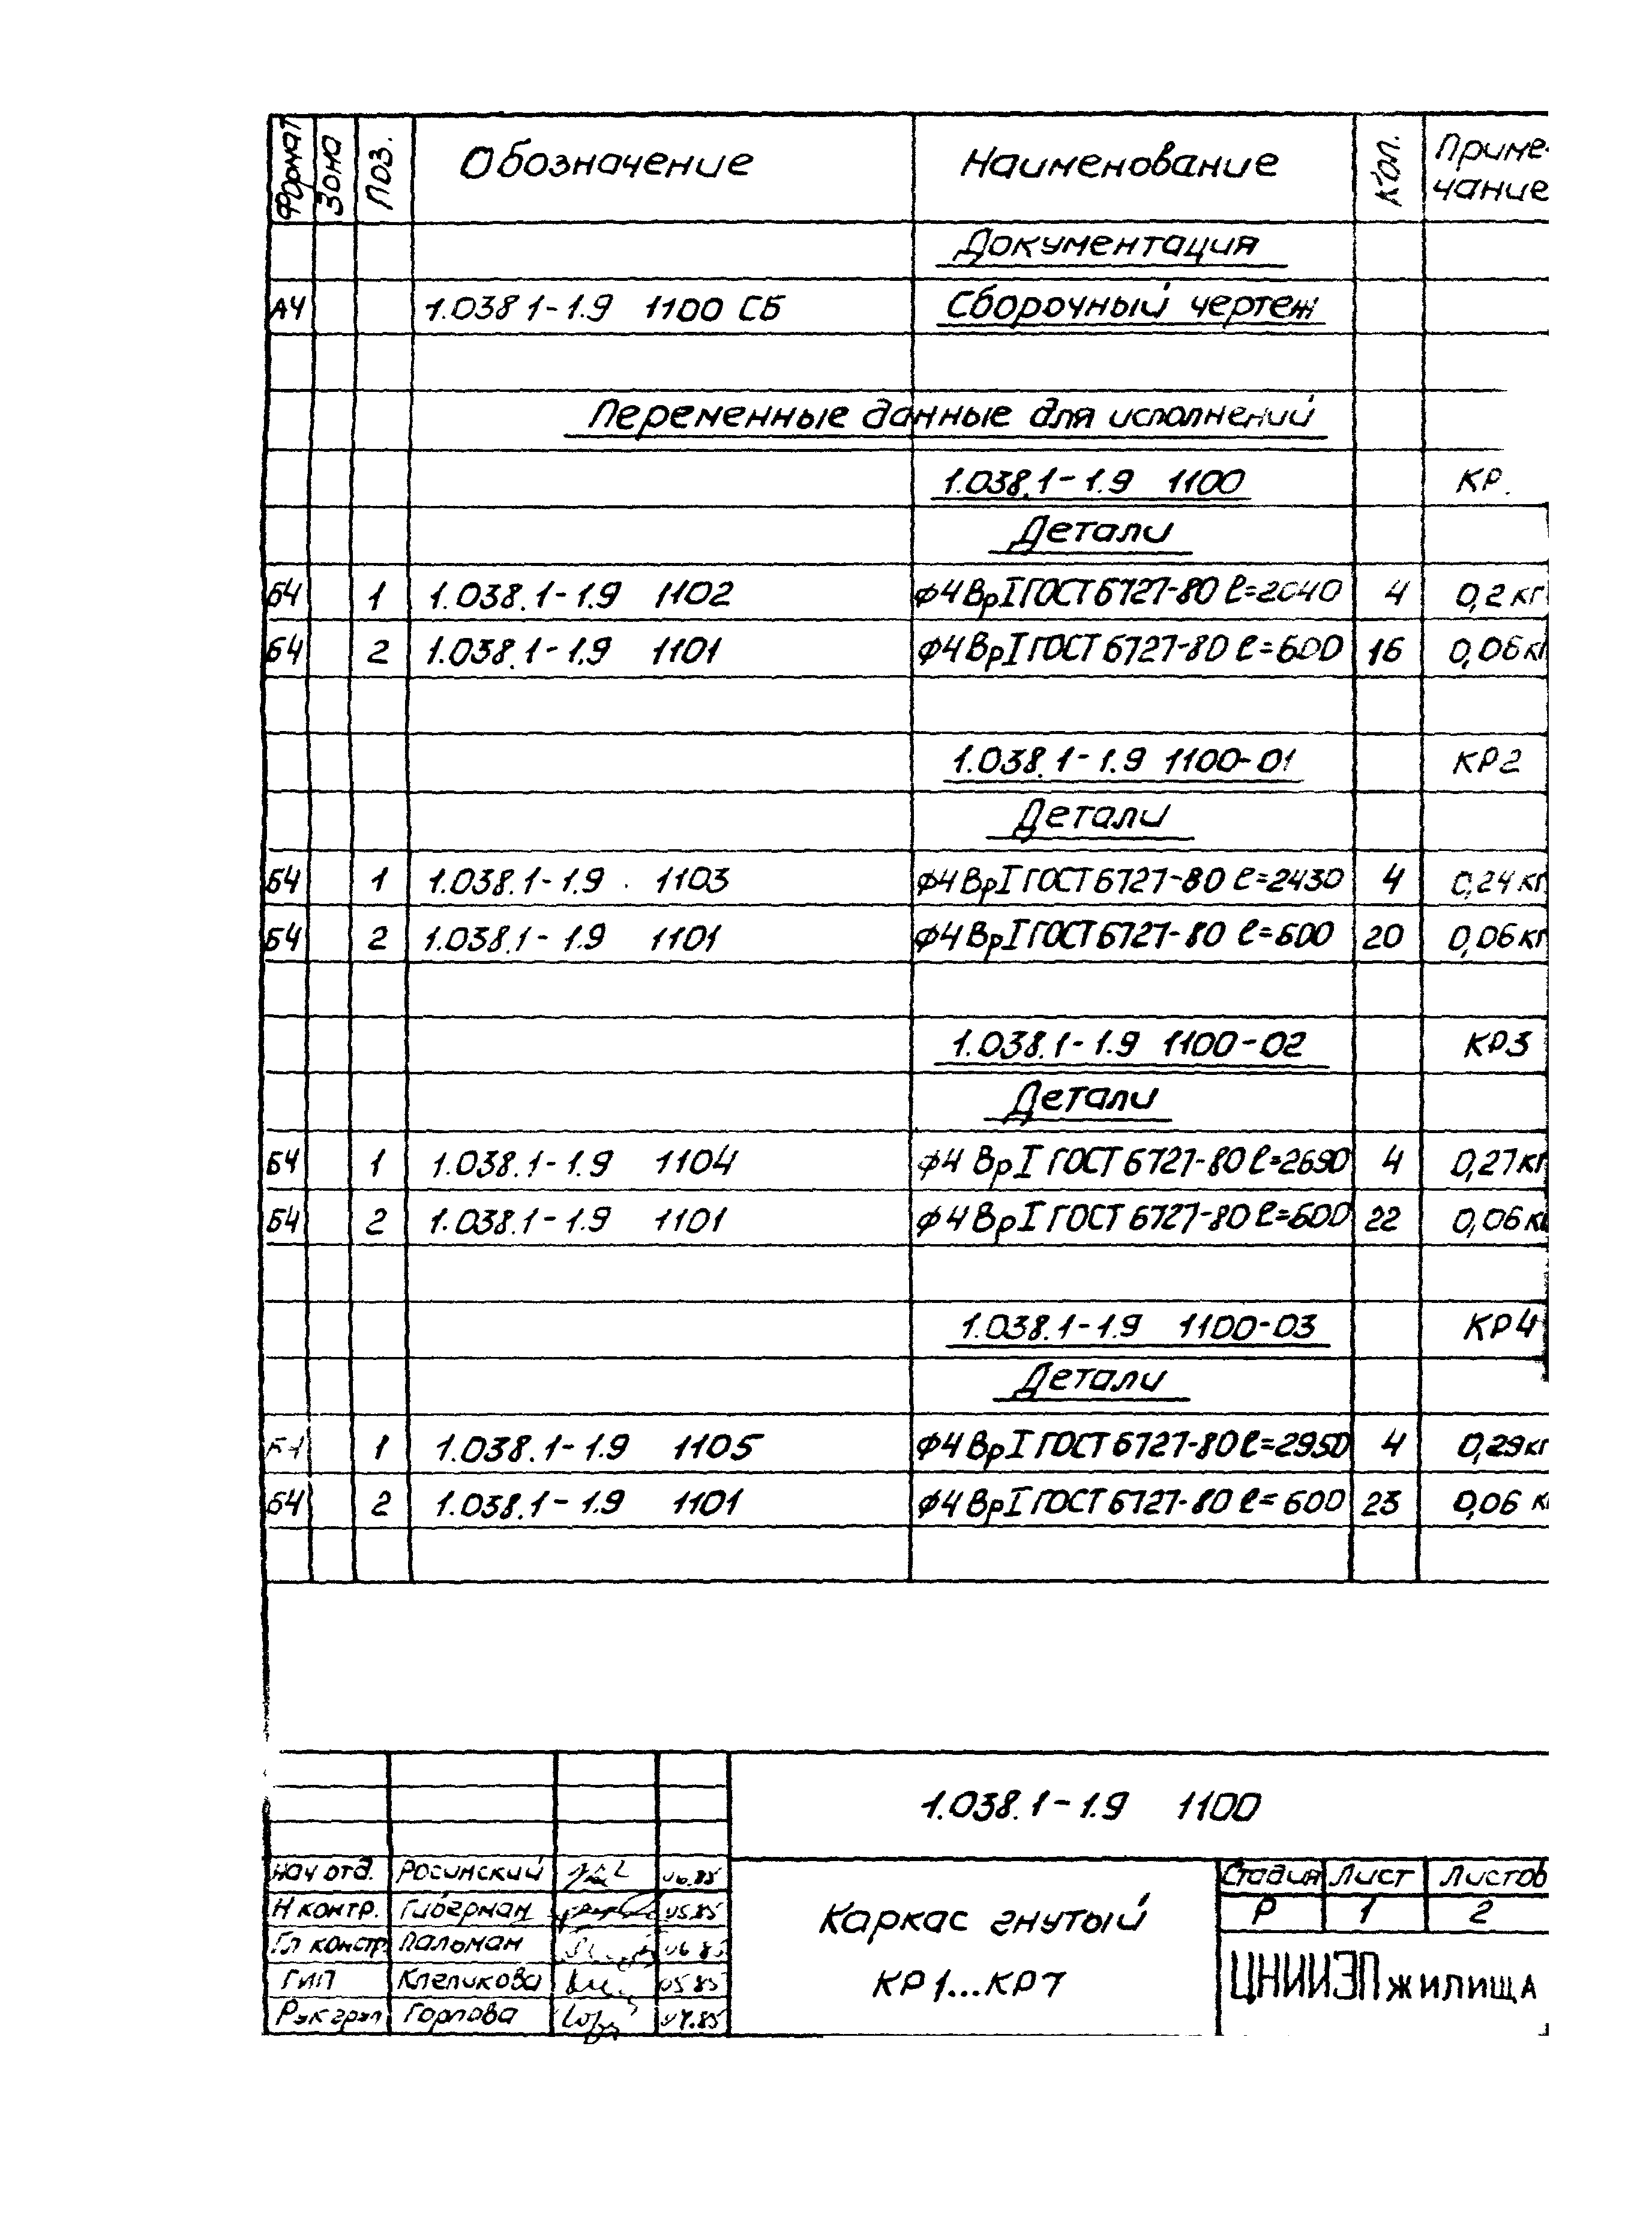 Формат Зона Поз. Обозначение Наименование Кол. Приме-
чание
Документация
А4 1.038 1-1.9 1100 СБ Сборочный чертеж
Переменные данные для исполнений
1.038.1-1.9 1100 КР.
Детали
Б4 1 1.038.1-1.9 1102 ф4ВрIГОСТ6727-80 l=2040 4 0,2 кг
Б4 2 1.038.1-1.9 1101 ф4ВрIГОСТ6727-80 l=600 16 0,06 кг
1.038.1-1.9 1100-01 КР2
Детали
Б4 1 1.038.1-1.9 1103 ф4ВрIГОСТ6727-80 l=2430 4 0,24 кг
Б4 2 1.038.1-1.9 1101 ф4ВрIГОСТ6727-80 l=600 20 0,06 кг
1.038.1-1.9 1100-02 КР3
Детали
Б4 1 1.038.1-1.9 1104 ф4 ВрI ГОСТ 6727-80 l=2690 4 0,27 кг
Б4 2 1.038.1-1.9 1101 ф4ВрI ГОСТ 6727-80 l=600 22 0,06 к
1.038.1-1.9 1100-03 КР4
Детали
1 1.038.1-1.9 1105 ф4ВрI ГОСТ 6727-80 l=2950 4 0,29 кг
Б4 2 1.038.1-1.9 1101 ф4ВрI ГОСТ 6727-80 l=600 23 0,06 к
1.038.1-1.9 1100
Нач отд. Росинский 06.85
Н контр. Гиберман 05.85
Гл констр. Пальман 06 85
ГИП Клепикова 05.85
Рук груп Горлова 04.85
Каркас гнутый
КР1...КР7
Стадия Лист Листов
Р 1 2
ЦНИИЭП жилища